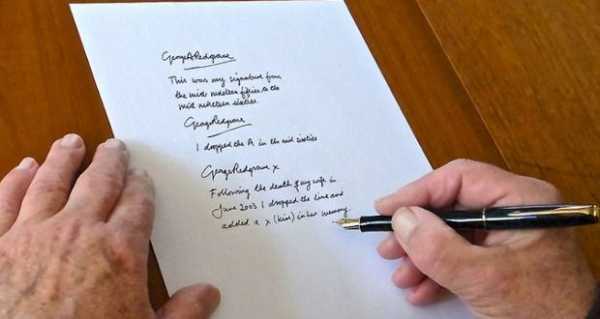 George A Redgrave
This was my signature from
the mid nineteen fifties to the
mid nineteen sixties
George Redgrave
I dropped the A in the mid sixties
George Redgrave x
Following the death of my wife in
June 2003 I dropped the line and
added a x (kiss) in her memory